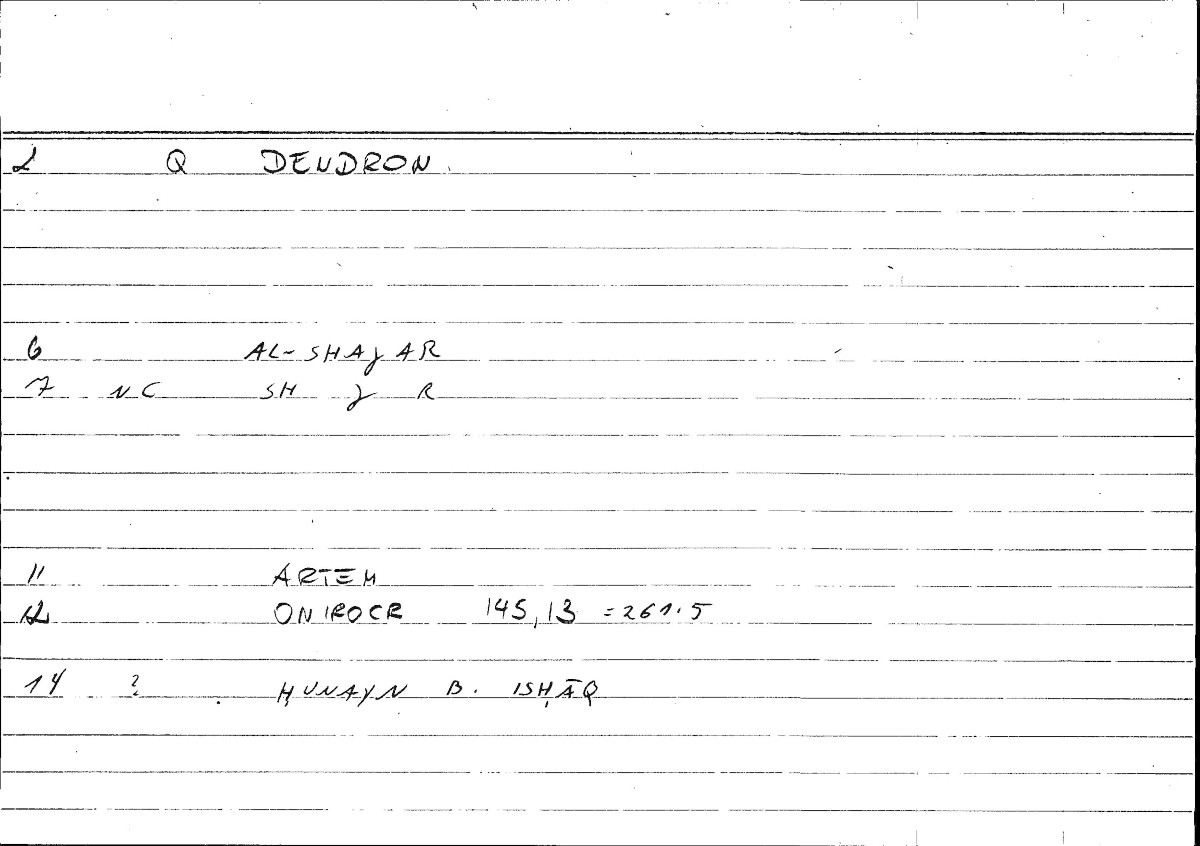 2 Q DENDRON
6 AL-SHAJAR
7 NC SH J R
11 ARTEM
12 ONIROCR 145,13 = 261.5
14 ? ḤUNAYN B. ISḤĀQ